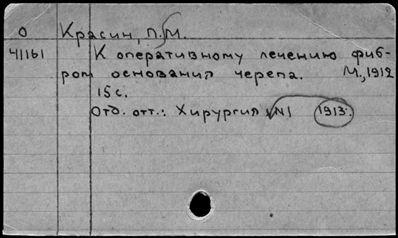 О Красин, П.М.
41161 К оперативному лечению фиб-
ром основания черепа. М., 1912
15 с.
Отд. отт.: Хирургия №1 1913.